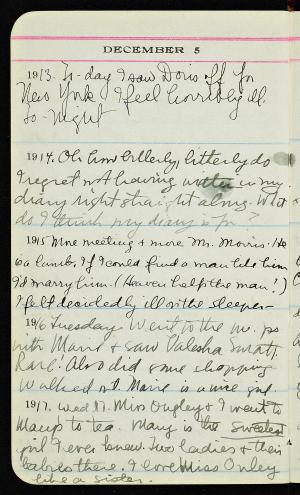 DECEMBER 5
1913. To-day I saw Doris off for
New York. I feel horribly ill
to-night
1914. Oh how bitterly, bitterly do
I regret not having written in my
diary right straight along. What
do I think my diary is for?
1915 More meeting & more Mr. Morris. He
is a lamb. If I could find a man like him
I'd marry him. (Heaven help the man!)
I felt decidedly ill on the sleeper-
1916 Tuesday. Went to the m. ps
with Marie & saw Valeska Suratt.
Rare! Also did some shopping
Walked out Marie is a nice girl.
1917. Wed. Miss Ongley & I went to
to tea. Mary is the sweetest
girl I ever knew. Two ladies & their
babies there. I love Miss Onley
like a sister.